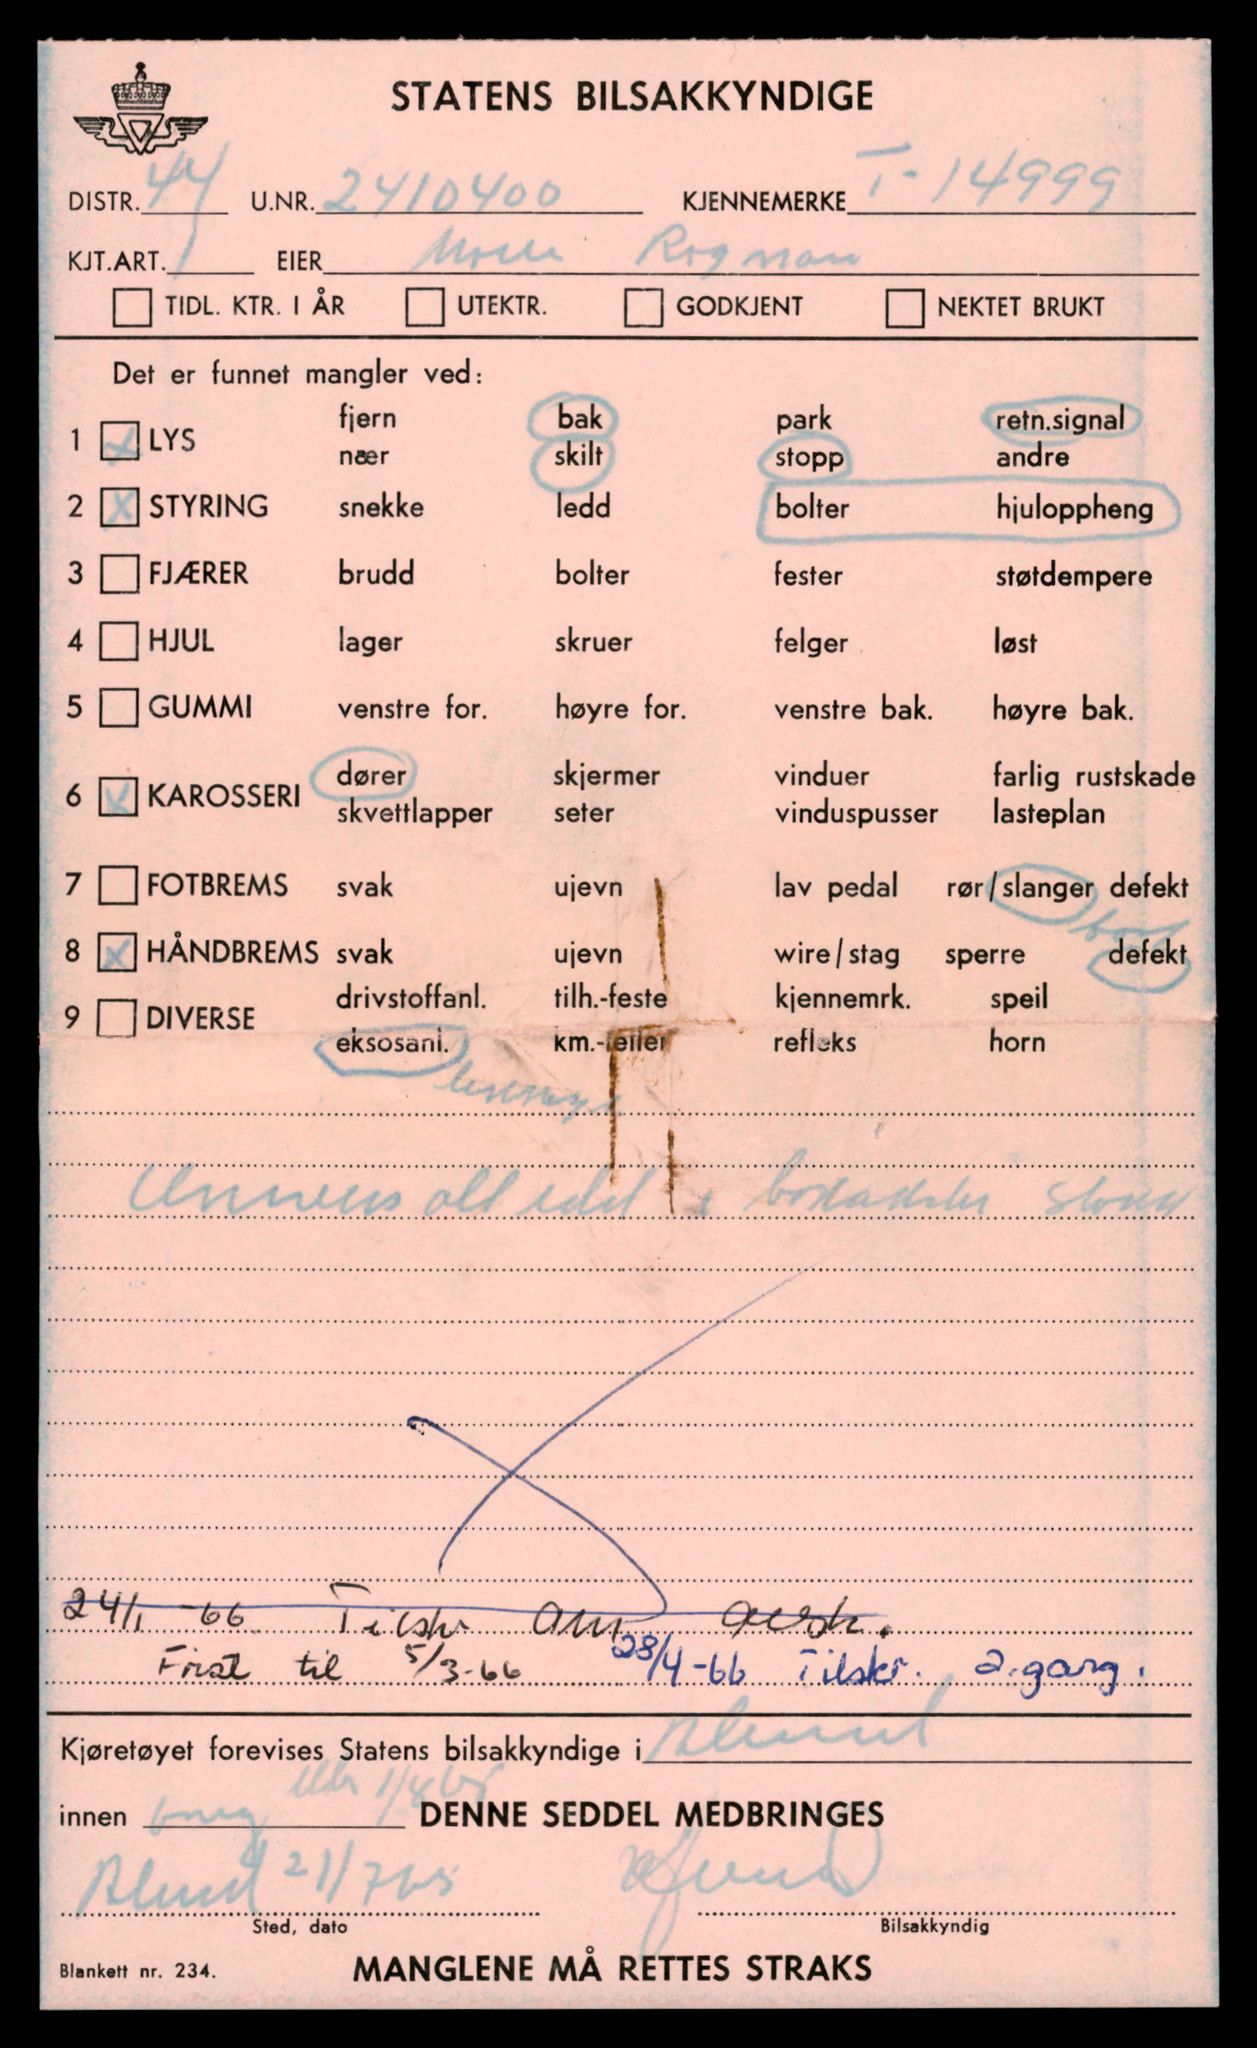 STATENS BILSAKKYNDIGE
DISTR. 44 U.NR. 2410400 KJENNEMERKE T-14999
KJT.ART. 1 EIER Rogman
TIDL. KTR. I ÅR UTEKTR. GODKJENT NEKTET BRUKT
Det er funnet mangler ved:
fjern bak park retn.signal
1 X LYS
nær skilt stopp andre
2 X STYRING snekke ledd bolter hjuloppheng
3 FJÆRER brudd bolter fester støtdempere
4 HJUL lager skruer felger løst
5 GUMMI venstre for. høyre for. venstre bak. høyre bak.
dører skjermer vinduer farlig rustskade
6 X KAROSSERI
skvettlapper seter vinduspusser lasteplan
7 FOTBREMS svak ujevn lav pedal rør/slanger defekt
8 X HÅNDBREMS svak ujevn wire/stag sperre defekt
drivstoffanl. tilh.-feste kjennemrk. speil
9 DIVERSE
eksosanl. km.-teller refleks horn
24/1 -66 Tilskr
Frist til 5/3-66 28/4-66 Tilskr. 2.gang.
Kjøretøyet forevises Statens bilsakkyndige i Ålesund
innen DENNE SEDDEL MEDBRINGES
Ålesund 21/7 65
Sted, dato Bilsakkyndig
Blankett nr. 234. MANGLENE MÅ RETTES STRAKS